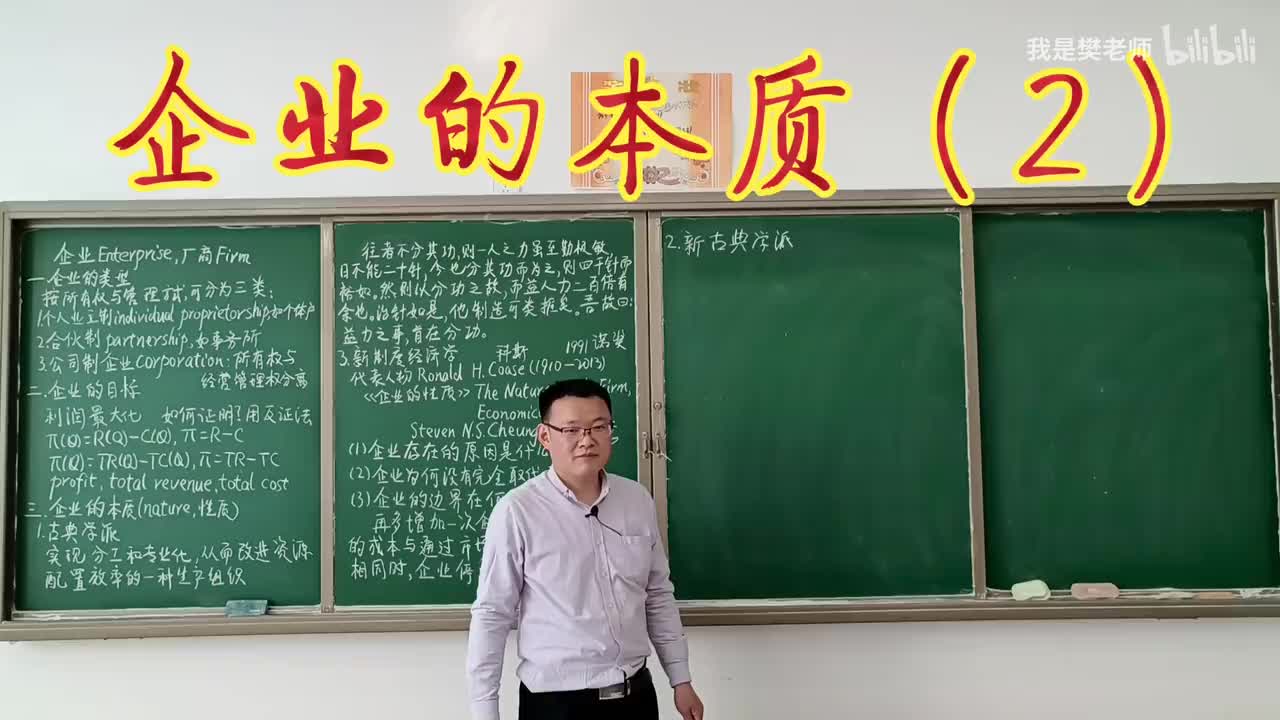 我是樊老师 bilibili
企业的本质（2）
企业Enterprise,厂商Firm
一.企业的类型
按所有权与管理方式,可分为三类:
1.个人业主制individual proprietorship,如个体户
2.合伙制partnership,如事务所
3.公司制企业corporation:所有权与
经营管理权分离
二.企业的目标
利润最大化 如何证明?用反证法
π(Q)=R(Q)-C(Q),π=R-C
π(Q)=TR(Q)-TC(Q),π=TR-TC
profit,total revenue,total cost
三.企业的本质(nature,性质)
1.古典学派
实现分工和专业化,从而改进资源
配置效率的一种生产组织
往者不分其功,则一人之力虽至勤极敏
日不能二十针,今也分其功而为之,则四千针而
裕如。然则以分功之故,而益人力二百倍有
余也。治针如是,他制造可类推矣。吾故曰:
益力之事,首在分功。
3.新制度经济学 科斯 1991诺奖
代表人物Ronald H.Coase(1910-2013)
《企业的性质》The Natur Firm,
Economic
Steven N.S.Cheung
(1)企业存在的原因是什
(2)企业为何没有完全取代
(3)企业的边界在
再多增加一次
的成本与通过市场
相同时,企业停
2.新古典学派